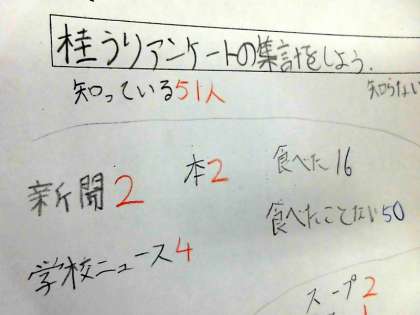 桂うりアンケートの集計をしよう.
知っている51人
知らない
本2
食べた 16
新聞 2
食べたことない50
学校ニュース4
スープ2